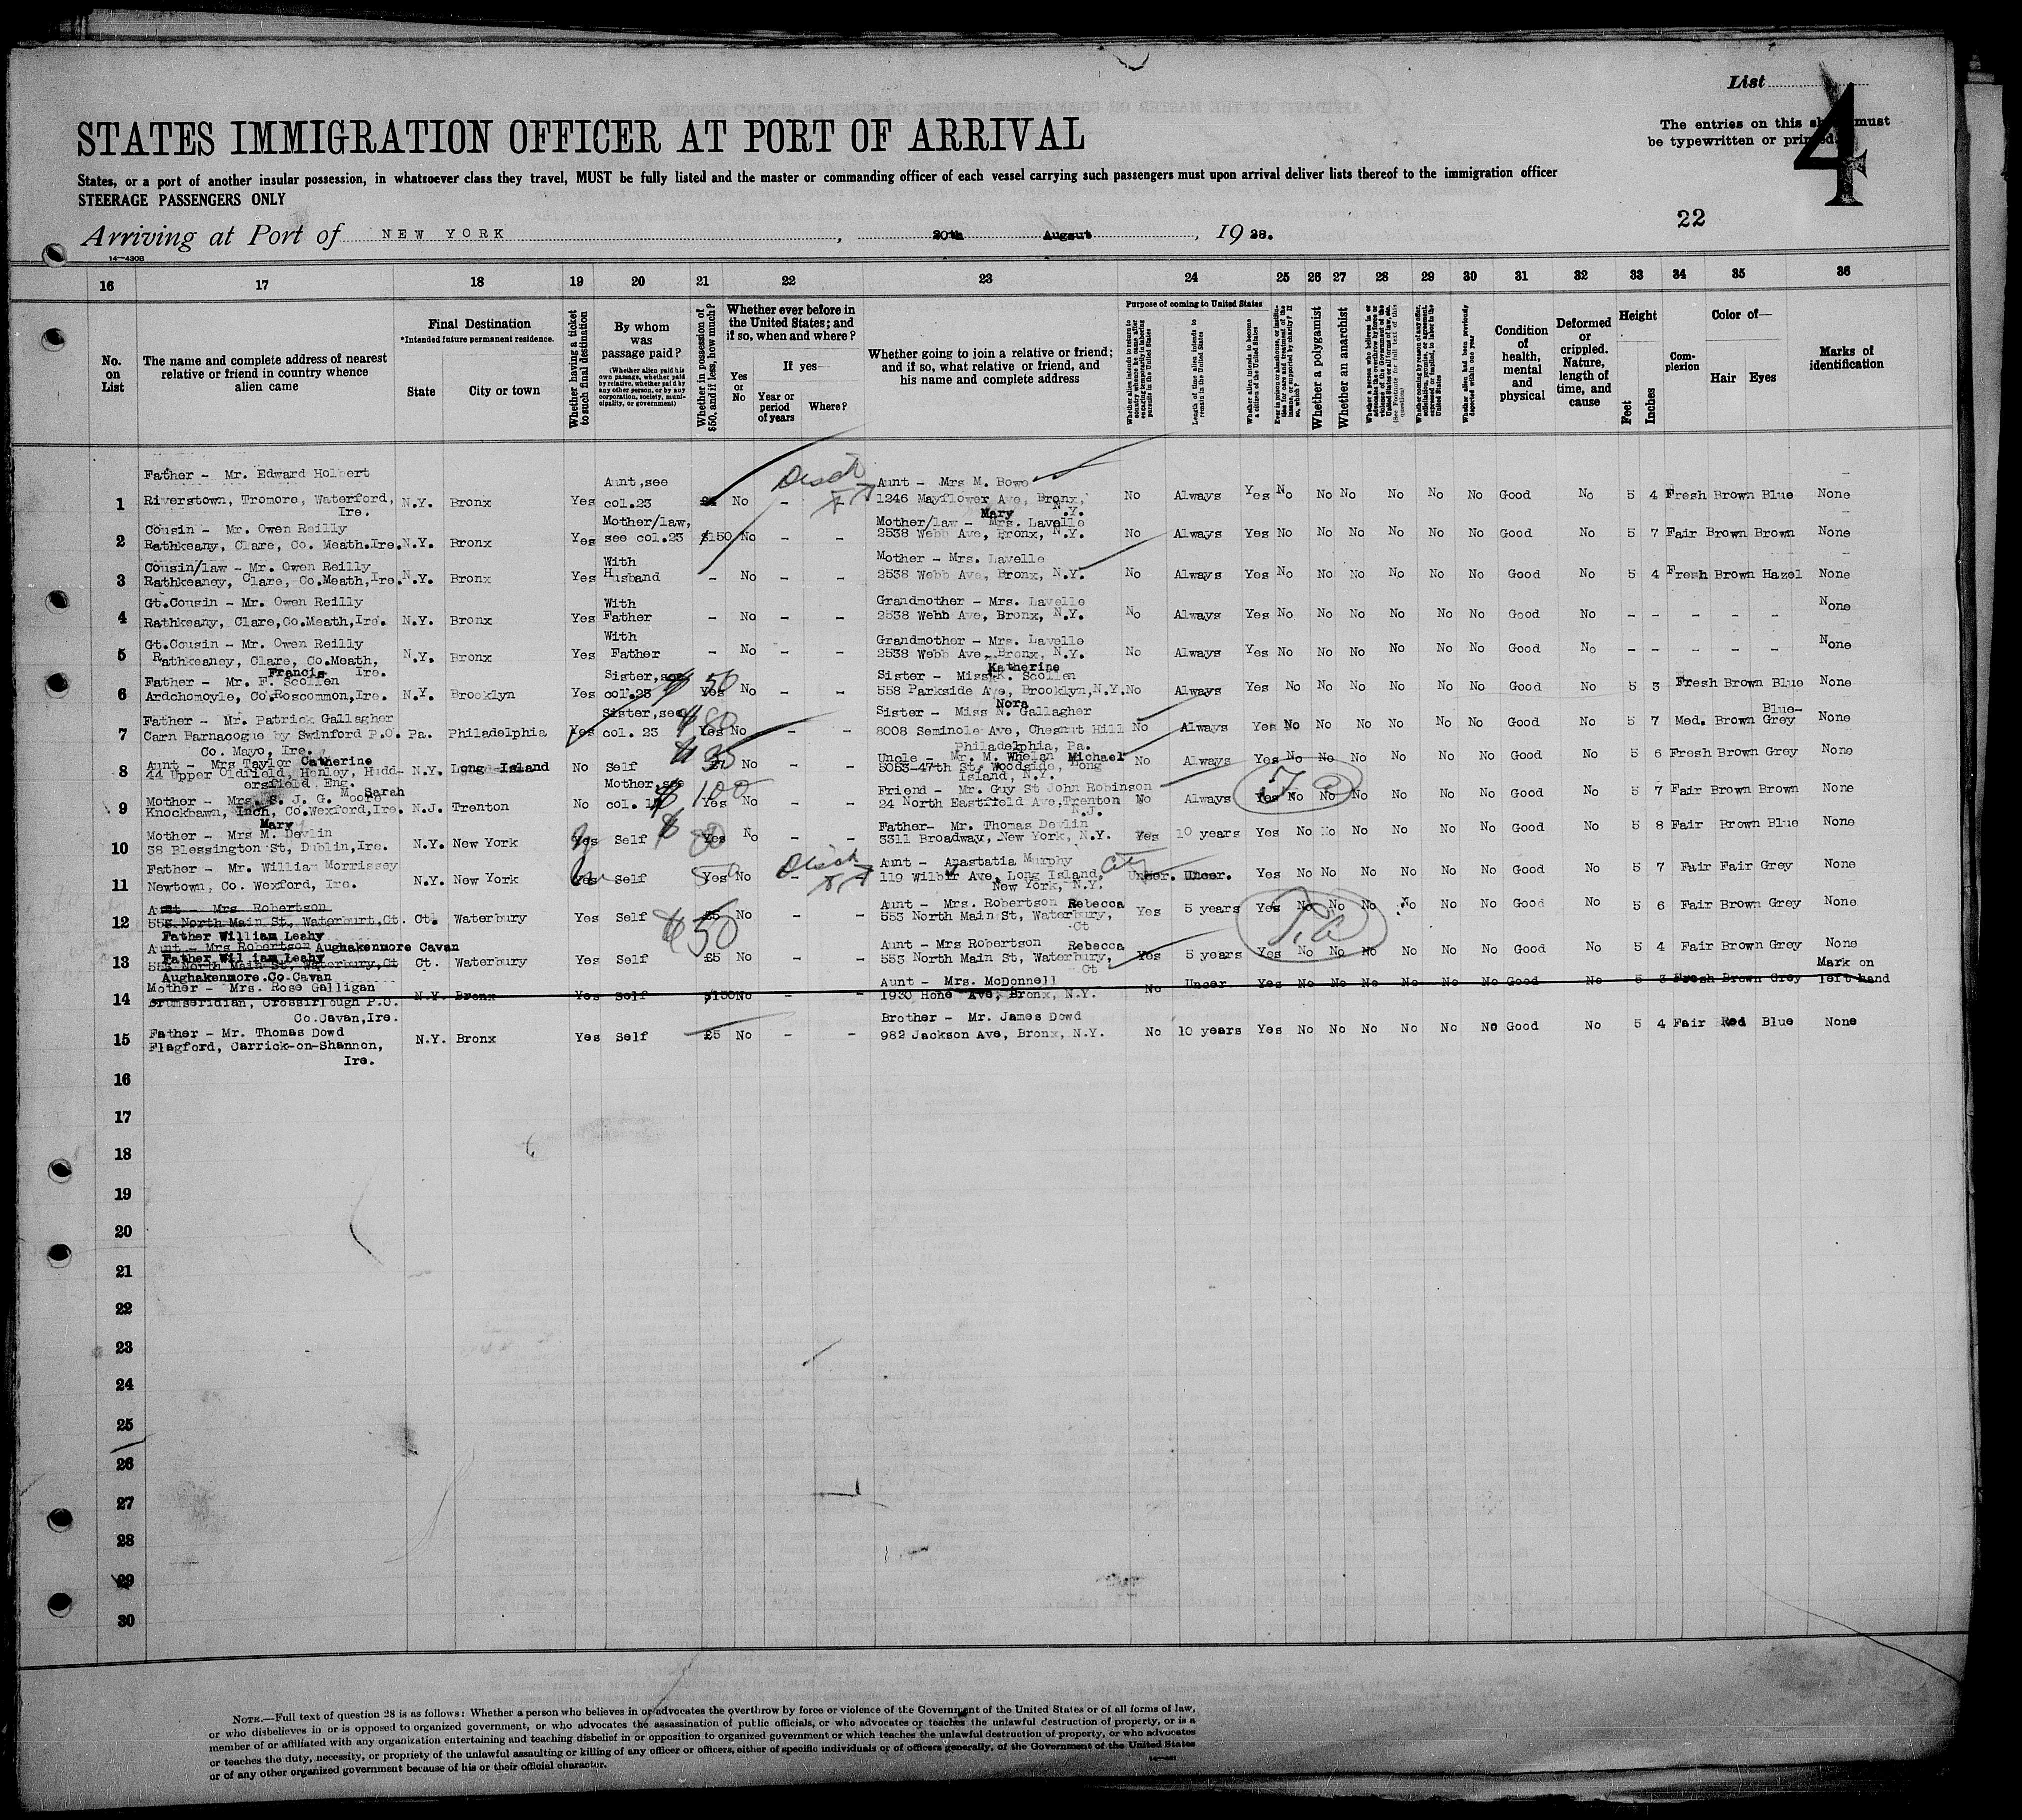 List
4
The entries on this sheet must
be typewritten or printed.
STATES IMMIGRATION OFFICER AT PORT OF ARRIVAL
States, or a port of another insular possession, in whatsoever class they travel, MUST be fully listed and the master or commanding officer of each vessel carrying such passengers must upon arrival deliver lists thereof to the immigration officer
STEERAGE PASSENGERS ONLY
22
Arriving at Port of NEW YORK, 20th Augsut, 1928.
14—430B
16 17 18 19 20 21 22 23 24 25 26 27 28 29 30 31 32 33 34 35 36
No. on List
The name and complete address of nearest relative or friend in country whence alien came
Final Destination
*Intended future permanent residence.
State
City or town
Whether having a ticket to such final destination
By whom was passage paid?
(Whether alien paid his own passage, whether paid by relative, whether paid by any other person, or by any corporation, society, municipality, or government)
Whether in possession of $50, and if less, how much?
Whether ever before in the United States; and if so, when and where?
Yes or No
If yes—
Year or period of years
Where?
Whether going to join a relative or friend; and if so, what relative or friend, and his name and complete address
Purpose of coming to United States
Whether alien intends to return to country whence he came after engaging temporarily in laboring pursuits in the United States
Length of time alien intends to remain in the United States
Whether alien intends to become a citizen of the United States
Ever in prison or almshouse, or institution for care and treatment of the insane, or supported by charity? If so, which?
Whether a polygamist
Whether an anarchist
Whether a person who believes in or advocates the overthrow by force or violence of the Government of the United States or all forms of law, etc. (See Footnote for full text of this question)
Whether coming by reason of any offer, solicitation, promise, or agreement, expressed or implied, to labor in the United States
Whether alien had been previously deported within one year
Condition of health, mental and physical
Deformed or crippled. Nature, length of time, and cause
Height
Feet
Inches
Complexion
Color of—
Hair Eyes
Marks of identification
Father - Mr. Edward Holbert Aunt,see Aunt - Mrs M. Bowe
1 Riverstown, Tromore, Waterford, N.Y. Bronx Yes col.23 No - 1246 Mayflower Ave, Bronx, No Always Yes No No No No No No Good No 5 4 Fresh Brown Blue None
Ire. N.Y.
Cousin - Mr. Owen Reilly Mother/law, Mother/law - Mrs. Lavelle Mary
2 Rathkeany, Clare, Co. Meath.Ire. N.Y. Bronx Yes see col.23 $150 No - - 2538 Webb Ave, Bronx, N.Y. No Always Yes No No No No No No Good No 5 7 Fair Brown Brown None
Cousin/law - Mr. Owen Reilly With Mother - Mrs. Lavelle
3 Rathkeaney, Clare, Co.Meath,Ire. N.Y. Bronx Yes Husband - No - - 2538 Webb Ave, Bronx, N.Y. No Always Yes No No No No No No Good No 5 4 Fresh Brown Hazel None
Gt.Cousin - Mr. Owen Reilly With Grandmother - Mrs. Lavelle
4 Rathkeany, Clare,Co.Meath,Ire. N.Y. Bronx Yes Father - No - - 2538 Webb Ave, Bronx, N.Y. No Always Yes No No No No No No Good No - - - - - None
Gt.Cousin - Mr. Owen Reilly With Grandmother - Mrs. Lavelle
5 Rathkeaney, Clare, Co.Meath, N.Y. Bronx Yes Father - No - - 2538 Webb Ave, Bronx, N.Y. No Always Yes No No No No No No Good No - - - - - None
Ire.
Father - Mr. F. Scollen Francis Sister,see $50 Sister - Miss K. Scollen Katherine
6 Ardchomoyle, Co.Roscommon,Ire. N.Y. Brooklyn Yes col.23 Yes No - - 558 Parkside Ave, Brooklyn,N.Y. No Always Yes No No No No No No Good No 5 3 Fresh Brown Blue None
Father - Mr. Patrick Gallagher Sister,see $80 Sister - Miss N. Gallagher Nora
7 Carn Barnacogue by Swinford P.O. Pa. Philadelphia Yes col. 23 Yes No - - 8008 Seminole Ave, Chesnut Hill No Always Yes No No No No No No Good No 5 7 Med. Brown Blue-Grey None
Co. Mayo, Ire. Philadelphia, Pa.
Aunt - Mrs Taylor Catherine $35 Uncle - Mr. M. Whelan Michael
8 44 Upper Oldfield, Honley, Hudd- N.Y. Long Island No Self No - - 5053-47th St. Woodside, Long No Always Yes No No No No No No Good No 5 6 Fresh Brown Grey None
ersfield Eng. Island, N.Y.
Mother - Mrs. S. J. G. Moore Sarah Mother,see $100 Friend - Mr. Guy St John Robinson
9 Knockbawn, Inch, Co.Wexford,Ire. N.J. Trenton No col. 17 Yes No - - 24 North Eastfield Ave,Trenton No Always Yes No No No No No No Good No 5 7 Fair Brown Brown None
N.J.
Mother - Mrs M. Devlin Mary Father- Mr. Thomas Devlin
10 38 Blessington St, Dublin,Ire. N.Y. New York Yes Self $80 Yes No - - 3311 Broadway, New York, N.Y. Yes 10 years Yes No No No No No No Good No 5 8 Fair Brown Blue None
Father - Mr. William Morrissey Aunt - Anastatia Murphy City
11 Newtown, Co. Wexford, Ire. N.Y. New York Yes Self 50 Yes No - 119 Wilbur Ave, Long Island, Uncer. Uncer. Yes No No No No No No Good No 5 7 Fair Fair Grey None
New York, N.Y.
Aunt - Mrs Robertson Aunt - Mrs. Robertson Rebecca
12 553 North Main St, Waterburt,Ct. Ct. Waterbury Yes Self $50 £5 No - - 553 North Main St, Waterbury, Yes 5 years Yes No No No No No No Good No 5 6 Fair Brown Grey None
Father William Leahy Ct
Aunt - Mrs Robertson Aughakenmore Cavan Aunt - Mrs Robertson Rebecca
Father William Leahy
13 553 North Main St, Waterbury,Ct Ct. Waterbury Yes Self £5 No - - 553 North Main St, Waterbury, Yes 5 years Yes No No No No No No Good No 5 4 Fair Brown Grey None
Aughakenmore.Co.Cavan Ct
Mother - Mrs. Rose Galligan Aunt - Mrs. McDonnell Mark on
14 Drumseridian, Crossirlough P.O. N.Y. Bronx Yes Self $150 No - - 1930 Hone Ave, Bronx, N.Y. No Uncer. Yes No No No No No No Good No 5 3 Fresh Brown Grey left hand
Co.Cavan,Ire.
Father - Mr. Thomas Dowd Brother - Mr. James Dowd
15 Flagford, Carrick-on-Shannon, N.Y. Bronx Yes Self £5 No - - 982 Jackson Ave, Bronx, N.Y. No 10 years Yes No No No No No No Good No 5 4 Fair Red Blue None
Ire.
16
17
18
19
20
21
22
23
24
25
26
27
28
29
30
NOTE.—Full text of question 28 is as follows: Whether a person who believes in or advocates the overthrow by force or violence of the Government of the United States or of all forms of law,
or who disbelieves in or is opposed to organized government, or who advocates the assassination of public officials, or who advocates or teaches the unlawful destruction of property, or is a
member of or affiliated with any organization entertaining and teaching disbelief in or opposition to organized government or which teaches the unlawful destruction of property, or who advocates
or teaches the duty, necessity, or propriety of the unlawful assaulting or killing of any officer or officers, either of specific individuals or of officers generally, of the Government of the United States
or of any other organized government because of his or their official character.